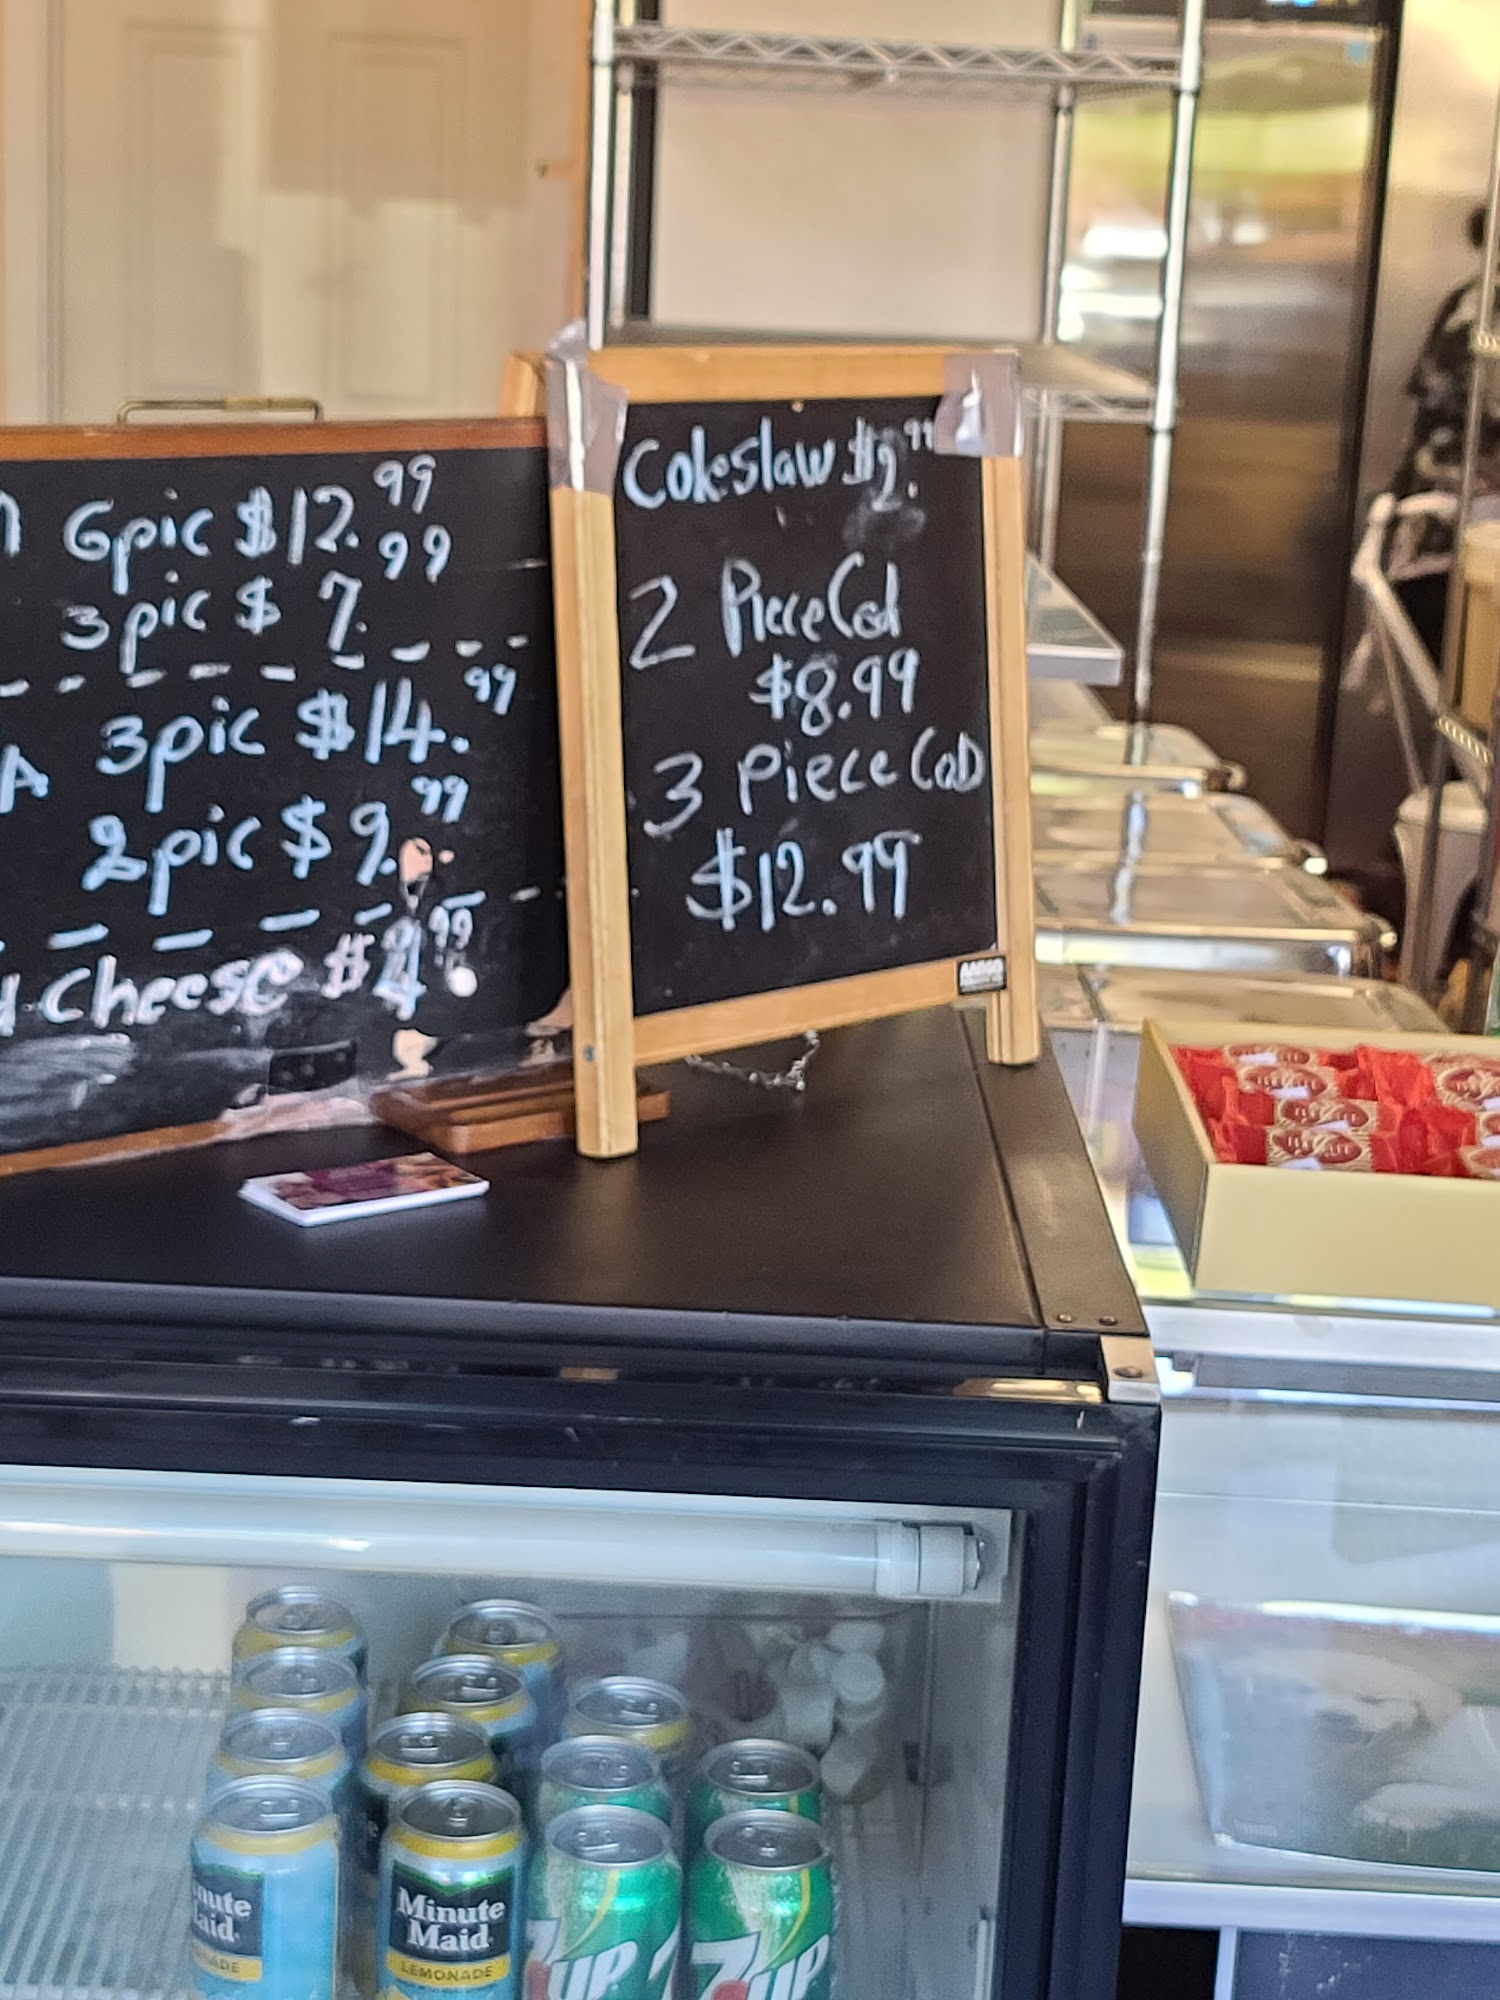 6pic $12.99
3pic $ 7.99
3pic $14.99
2pic $9.99
Cheese $4.99
Coleslaw $2.99
2 Piece Cod
$8.99
3 Piece CoD
$12.99
nute
aid
ADE
Minute
Maid
LEMONADE
7UP
7UP